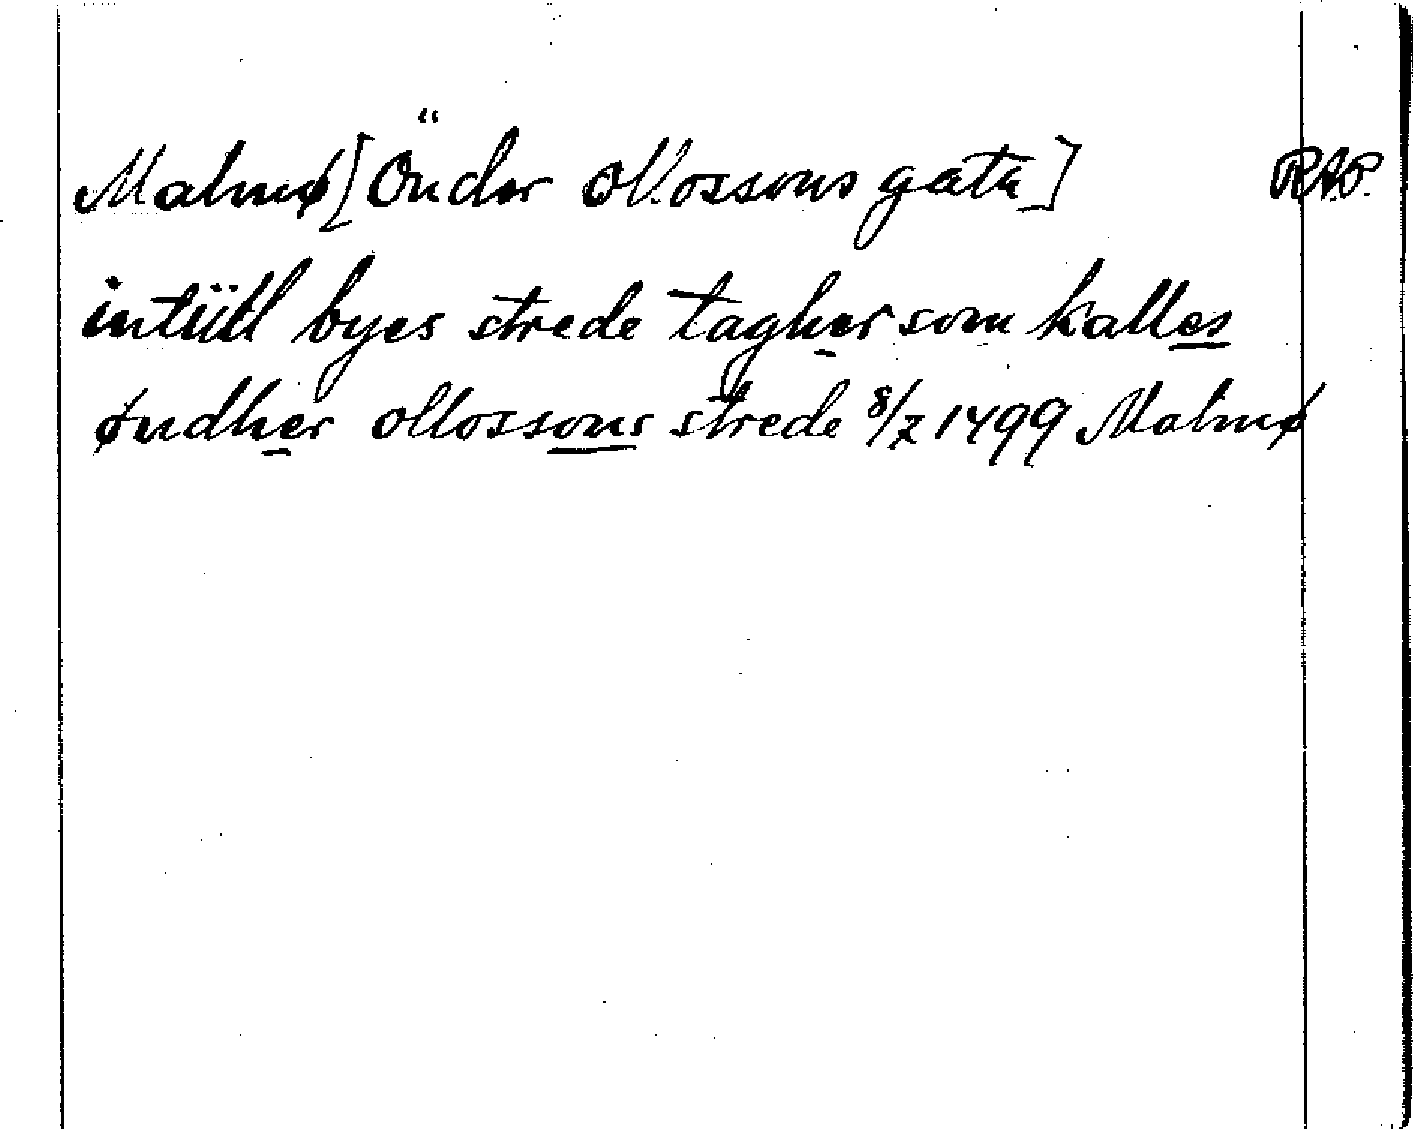 Malmø [Önder Ollossons gata] RAP.
intiill byes strede tagher som kalles
øndher ollossons strede 8/2 1499 Malmø